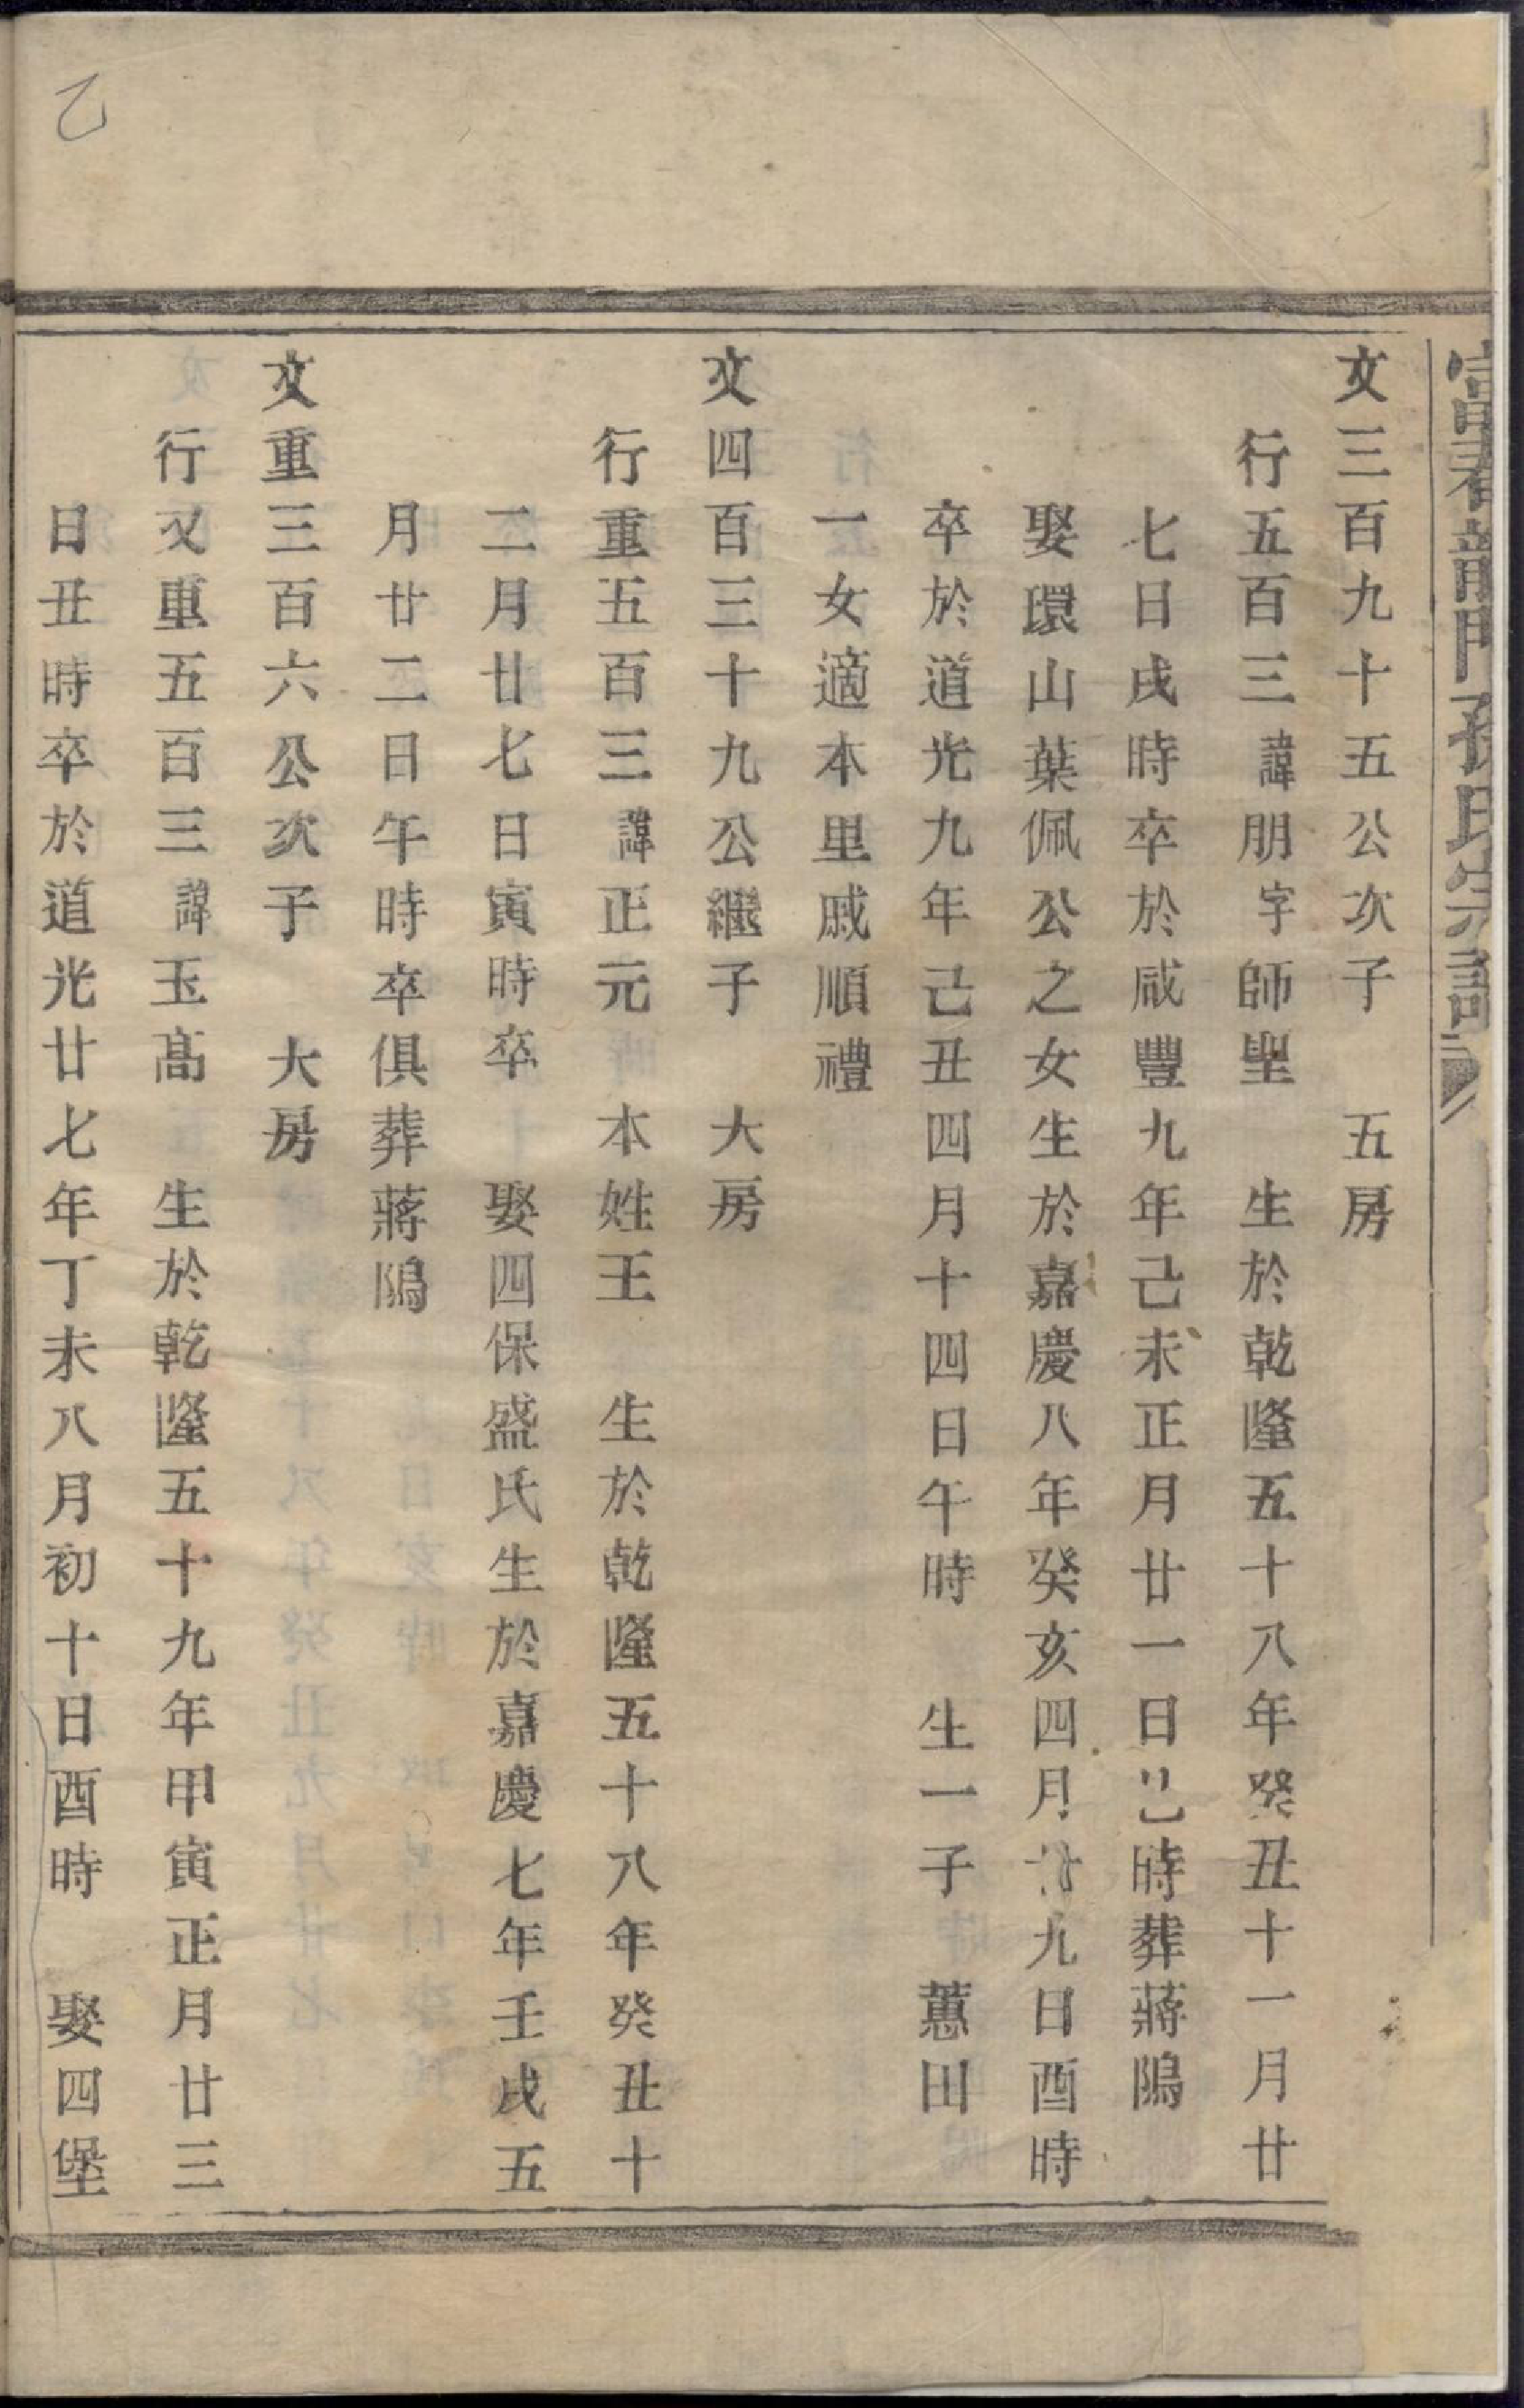 富春龍門孫氏宗譜
文三百九十五公次子　五房
行五百三諱朋字師聖　生於乾隆五十八年癸丑十一月廿
七日戌時卒於咸豐九年己未正月廿一日巳時葬蔣隖
娶環山葉佩公之女生於嘉慶八年癸亥四月廿九日酉時
卒於道光九年己丑四月十四日午時　生一子　蕙田
一女適本里戚順禮
文四百三十九公繼子　大房
行重五百三諱正元　本姓王　生於乾隆五十八年癸丑十
二月廿七日寅時卒　娶四保盛氏生於嘉慶七年壬戌五
月廿二日午時卒俱葬蔣隖
文重三百六公次子　大房
行又重五百三諱玉高　生於乾隆五十九年甲寅正月廿三
日丑時卒於道光廿七年丁未八月初十日酉時　娶四堡
乙